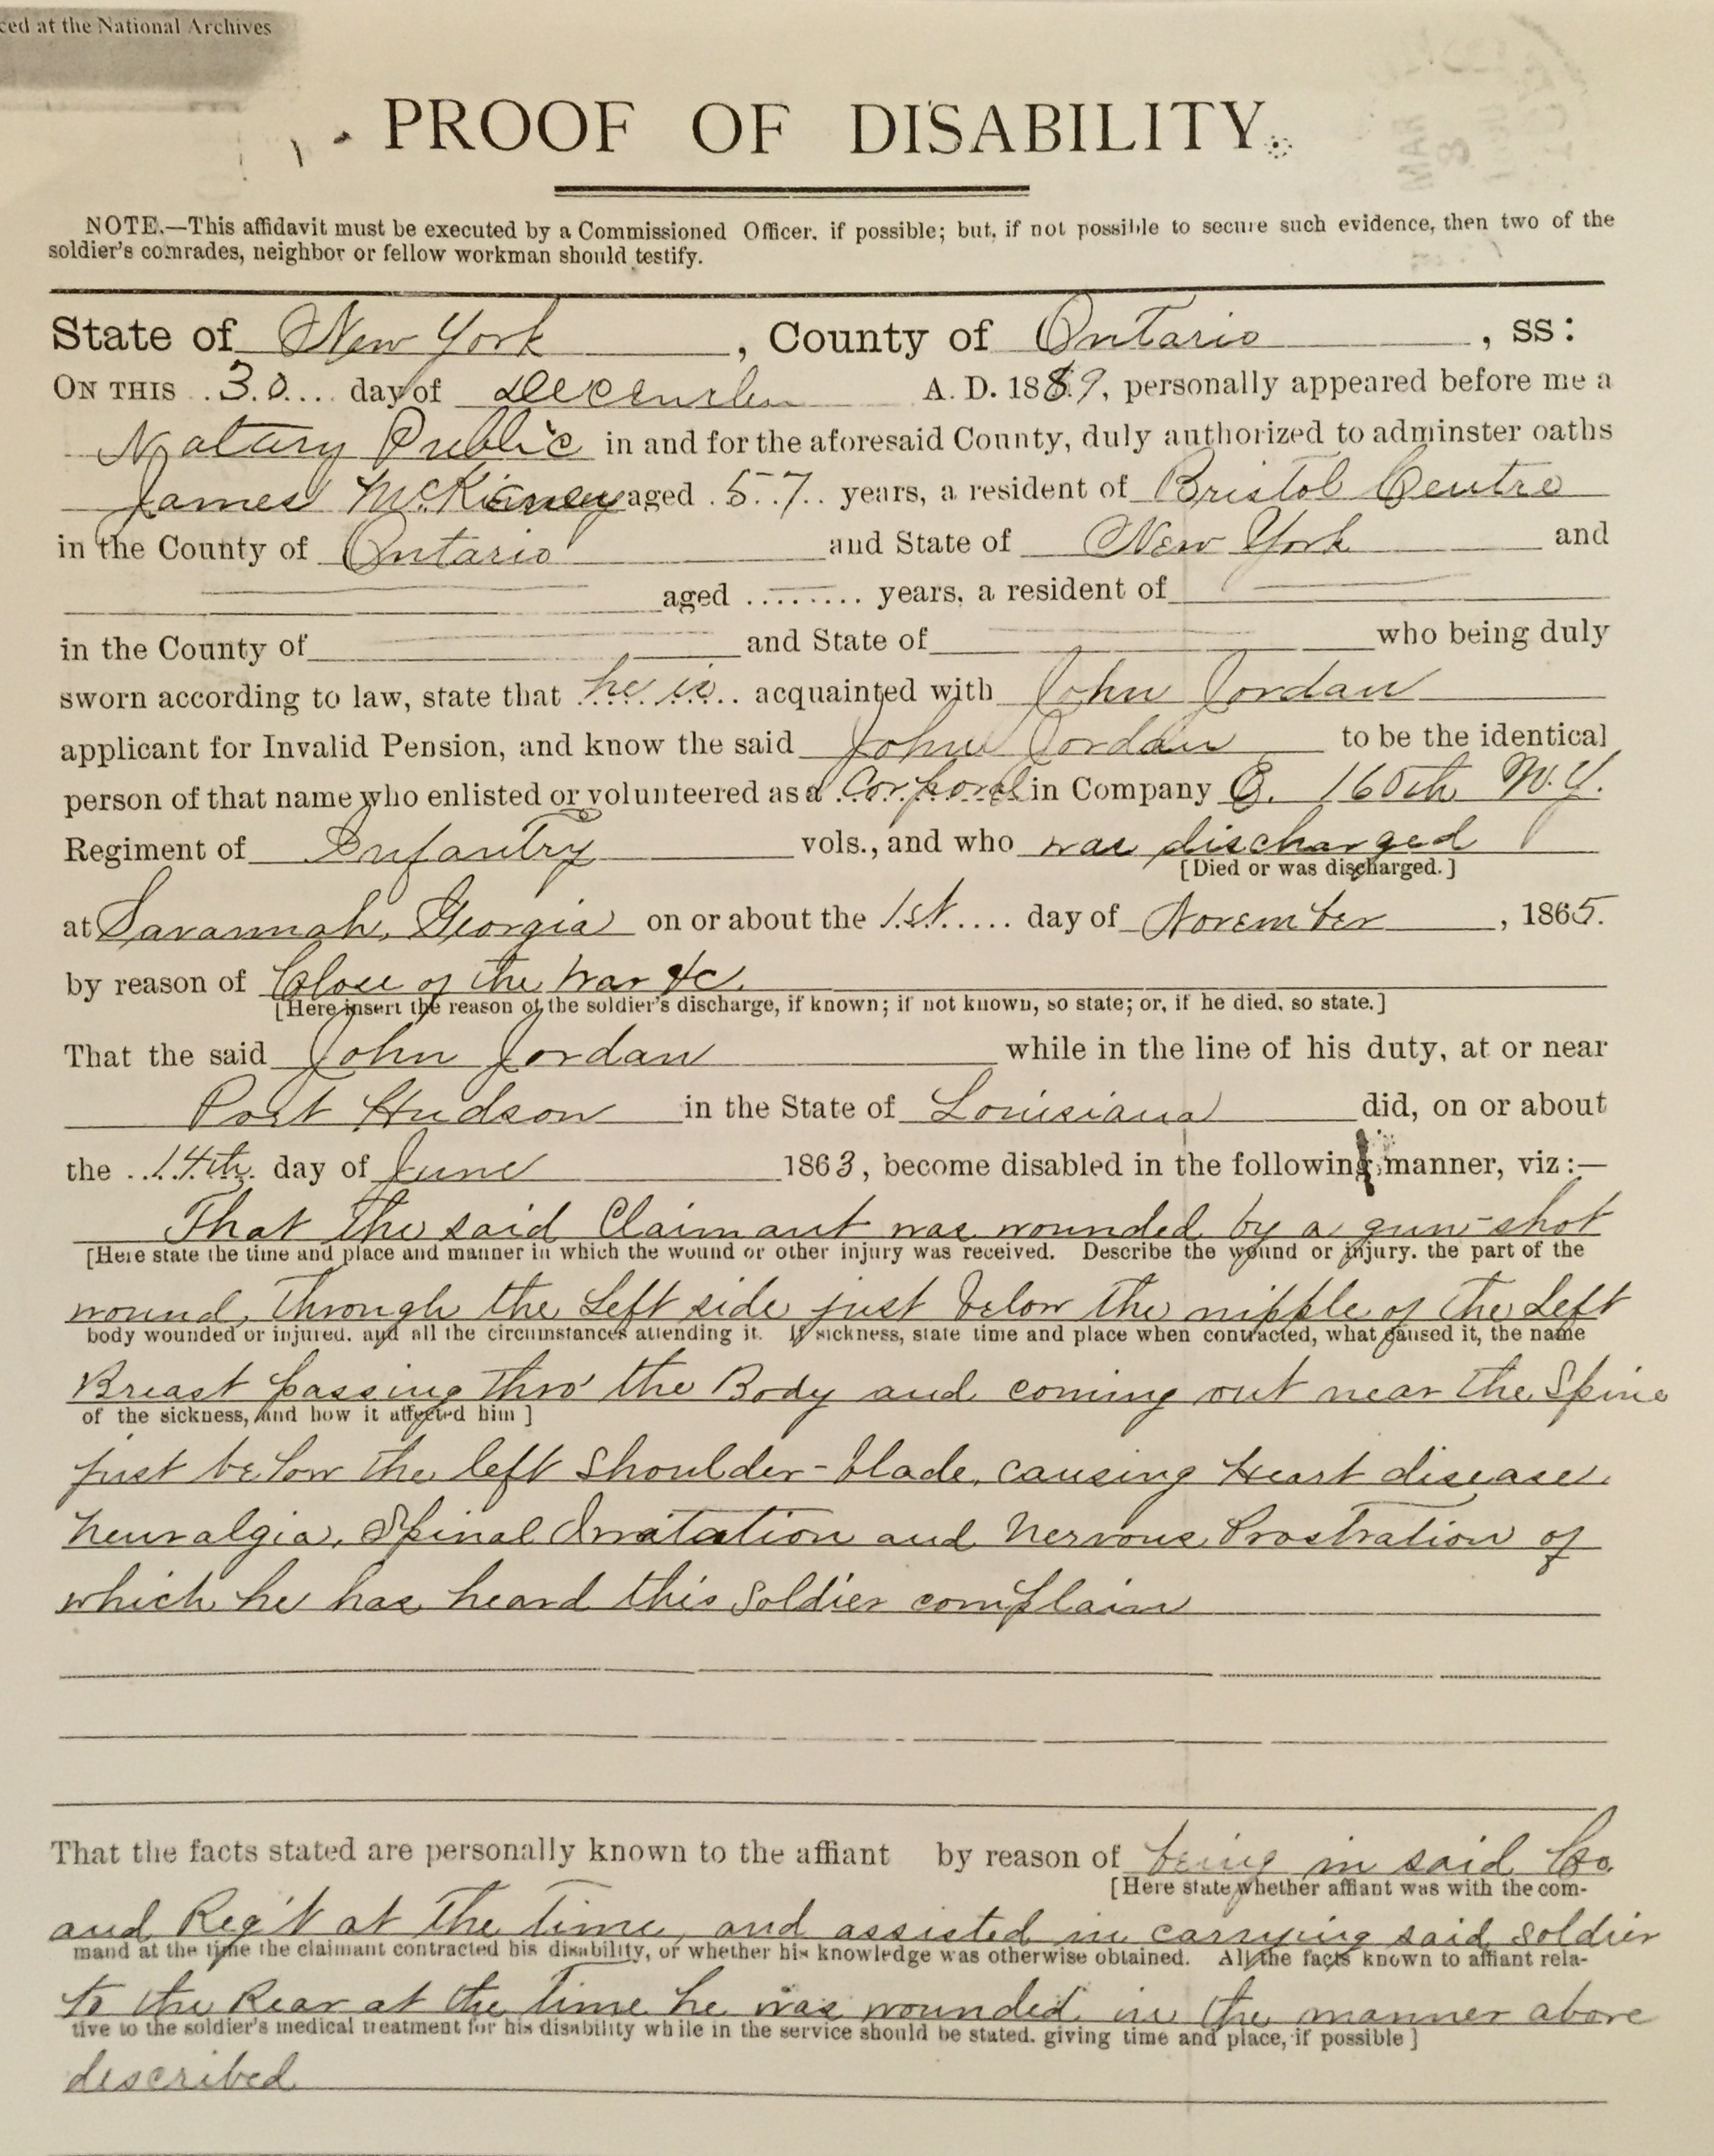 ced at the National Archives
PROOF OF DISABILITY.
NOTE.—This affidavit must be executed by a Commissioned Officer, if possible; but, if not possible to secure such evidence, then two of the
soldier's comrades, neighbor or fellow workman should testify.
State of New York, County of Ontario, ss:
ON THIS 30 day of December A. D. 1889, personally appeared before me a
Notary Public in and for the aforesaid County, duly authorized to adminster oaths
James McKinney aged 57 years, a resident of Bristol Centre
in the County of Ontario and State of New York and
aged ........ years, a resident of
in the County of and State of who being duly
sworn according to law, state that he is acquainted with John Jordan
applicant for Invalid Pension, and know the said John Jordan to be the identical
person of that name who enlisted or volunteered as a Corporal in Company 160th N.Y.
Regiment of Infantry vols., and who was discharged
[Died or was discharged.]
at Savannah, Georgia on or about the 1st day of November, 1865.
by reason of Close of the War &c.
[Here insert the reason of the soldier's discharge, if known; if not known, so state; or, if he died, so state.]
That the said John Jordan while in the line of his duty, at or near
Port Hudson in the State of Louisiana did, on or about
the 14th day of June 1863, become disabled in the following manner, viz:—
That the said Claimant was wounded by a gun-shot
[Here state the time and place and manner in which the wound or other injury was received. Describe the wound or injury. the part of the
wound, through the Left side just below the nipple of the Left
body wounded or injured. and all the circumstances attending it. If sickness, state time and place when contracted, what caused it, the name
Breast passing thro' the Body and coming out near the Spine
of the sickness, and how it affected him]
just below the left shoulder-blade, causing Heart disease,
Neuralgia, Spinal Irritation and Nervous Prostration of
which he has heard this soldier complain
That the facts stated are personally known to the affiant by reason of being in said Co.
[Here state whether affiant was with the com-
and Reg't at the time, and assisted in carrying said soldier
mand at the time the claimant contracted his disability, or whether his knowledge was otherwise obtained. All the facts known to affiant rela-
to the Rear at the time he was wounded in the manner above
tive to the soldier's medical treatment for his disability while in the service should be stated. giving time and place, if possible]
described